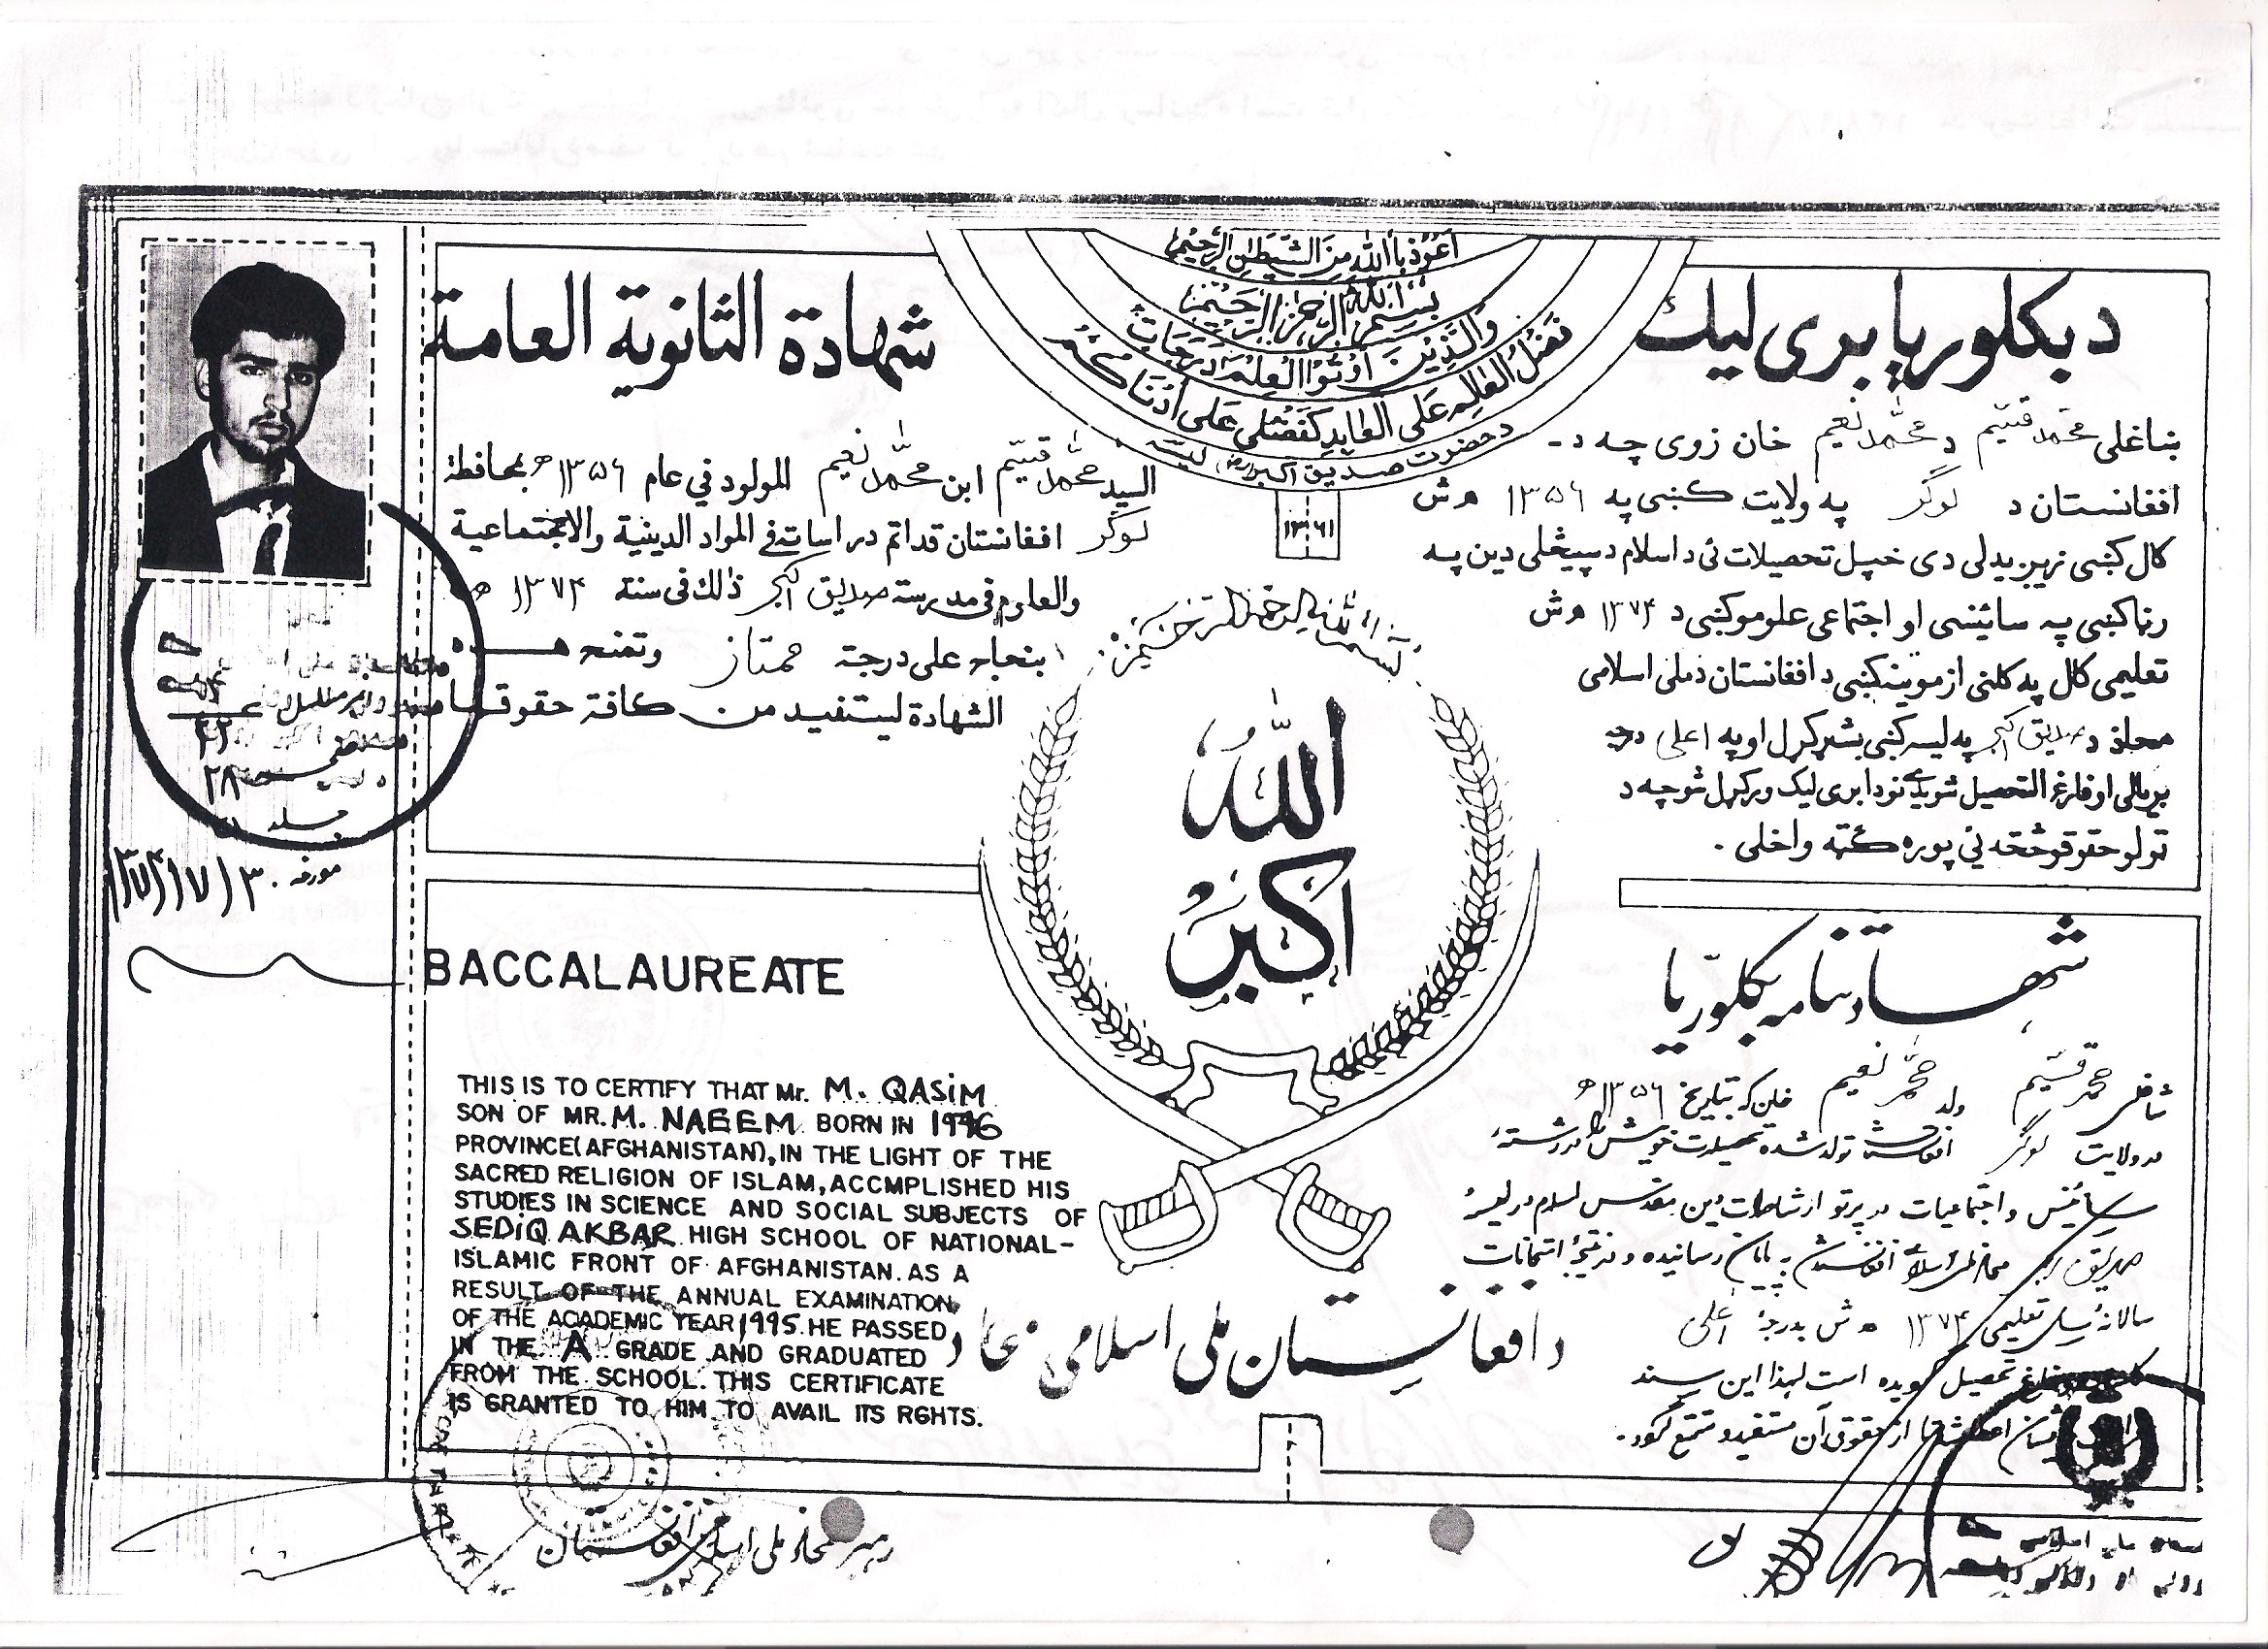 اَعُوْذُ بِاللّٰهِ مِنَ الشَّيْطٰنِ الرَّجِيْمِ
بِسْمِ اللّٰهِ الرَّحْمٰنِ الرَّحِيْمِ
وَالَّذِيْنَ اُوْتُوا الْعِلْمَ دَرَجَاتٍ
فَضْلُ الْعَالِمِ عَلَى الْعَابِدِ كَفَضْلِي عَلَى اَدْنَاكُمْ
د حضرت صدیق اکبر (رض) لیسه
١٣٦١
د بکلوریا بری لیک
ښاغلی محمد قسیم د محمد نعیم خان زوی چه د -
افغانستان د لوگر په ولایت کښی په ١٣٥٦ ه ش
کال کښی زیږیدلی دی خپل تحصیلات ئی د اسلام د سپیڅلی دین په
رڼا کښی په سائینسی او اجتماعی علومو کښی د ١٣٧٤ ه ش
تعلیمی کال په کلنی ازموینه کښی د افغانستان د ملی اسلامی
محاذ د صدیق اکبر په لیسه کښی بشپړ کړل او په اعلی درجه
بریالی او فارغ التحصیل شویدی نو دا بری لیک ورکړل شو چه د
ټولو حقوقو څخه ئی پوره ګټه واخلی .
شهادة الثانوية العامة
السيد محمد قسیم ابن محمد نعیم المولود في عام ١٣٥٦ ه بمحافظة
لوگر افغانستان قد اتم دراساته في المواد الدينية والاجتماعية
والعلوم في مدرسة صدیق اکبر ذلك في سنة ١٣٧٤ ه
بنجاح على درجة ممتاز وتمنح هذه
الشهادة ليستفيد من كافة حقوقها
بسم الله الرحمن الرحيم
الله
اكبر
د افغانستان ملی اسلامی محاذ
مورخه ١٣٧٤/٧/٣٠
BACCALAUREATE
THIS IS TO CERTIFY THAT Mr. M. QASiM
SON OF MR. M. NAEEM BORN IN
PROVINCE(AFGHANISTAN), IN THE LIGHT OF THE
SACRED RELIGION OF ISLAM, ACCMPLISHED HIS
STUDIES IN SCIENCE AND SOCIAL SUBJECTS OF
SEDiQ AKBAR HIGH SCHOOL OF NATIONAL-
ISLAMIC FRONT OF AFGHANISTAN. AS A
RESULT OF THE ANNUAL EXAMINATION
OF THE ACADEMIC YEAR 1995. HE PASSED
IN THE A GRADE AND GRADUATED
FROM THE SCHOOL. THIS CERTIFICATE
IS GRANTED TO HIM TO AVAIL ITS RGHTS.
شهادتنامه بکلوریا
ښاغلی محمد قسیم ولد محمد نعیم خان که بتاریخ ١٣٥٦ ه
در ولایت لوگر افغانستان تولد شده تحصیلات خویش را در رشته
سائینس و اجتماعیات در پرتو ارشادات دین مقدس اسلام در لیسه
صدیق اکبر محاذ ملی اسلامی افغانستان به پایان رسانیده و در نتیجه امتحانات
سالانه سال تعلیمی ١٣٧٤ ه ش بدرجه اعلی
تحصیل گردیده است لهذا این سند
از حقوق آن مستفید و متمتع گردد .
رهبر محاذ ملی اسلامی افغانستان